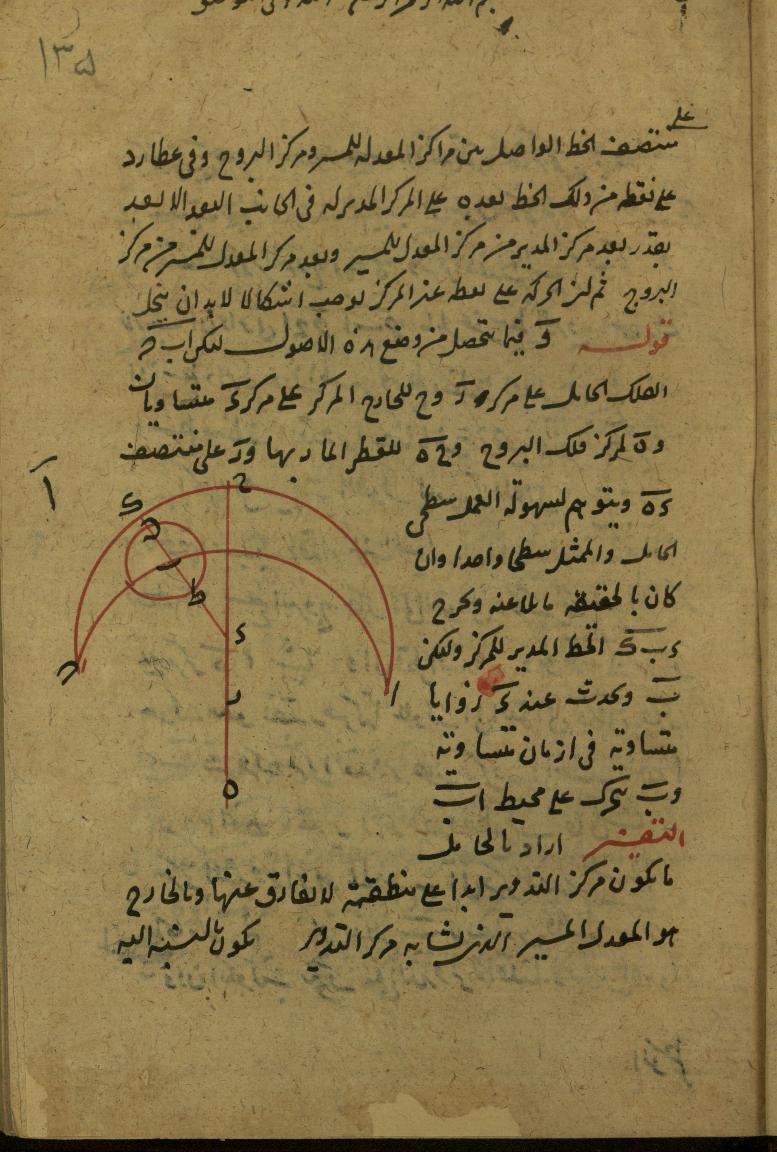 ١٣٥
على
منتصف الخط الواصل بين مراكز المعدله للمسير ومركز البروج وفى عطارد
على نقطه من ذلك الخط بعده على المركز المدير له فى الجانب البعد الابعد
بقدر بعد مركز المدير من مركز المعدل للمسير وبعد مركز المعدل للمسير من مركز
البروج ثم لزم الحركه على نقطه غير المركز توجب اشكالا لا بد ان ينحل
قوله و فيما يتحصل من وضع هذه الاصول ليكن اب ح
الفلك الحامل على مركز ر و ح للخارج المركز على مركز ء متساويان
و ه لمركز فلك البروج و ح ه للقطر المار بها و ر على منتصف
ء ه ويتوهم لسهولة العمل سطحى
الحامل والممثل سطحا واحدا وان
كان بالحقيقه مائلا عنه ويخرج
ء ب ك الخط المدير للمركز وليكن
ب ويحدث عند ء زوايا
متساويه فى ازمان متساويه
و ب يتحرك على محيط اب
التفسير اراد بالحامل
ما يكون مركز التدوير ابدا على منطقته لا يفارق عنها وبالخارج
هو المعدل المسير الذى تشابه مركز التدوير يكون بالنسبه اليه
ح
ك
ه
ب
ط
ء
ر
ه
ح
ا